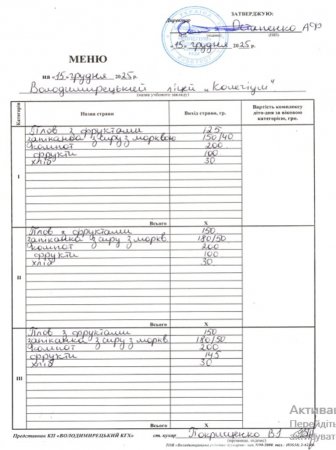 ЗАТВЕРДЖУЮ:
Директор Остапенко А Ф
(ПІБ)
"15" грудня 2025 р.
МЕНЮ
на "15" грудня 2025 р.
Володимирецький ліцей "Колегіум"
(назва учбового закладу)
Категорія Назва страви Вихід страви, гр. Вартість комплексу діто-дня за віковою категорією, грн.
I
Плов з фруктами 125
запіканка з сиру з морквою 150/40
компот 200
фрукти 100
хліб 30
Всього X
II
Плов з фруктами 150
запіканка з сиру з моркв 180/50
компот 200
фрукти 100
хліб 30
Всього X
III
Плов з фруктами 150
запіканка з сиру з моркв 180/50
компот 200
фрукти 145
хліб 30
Всього X
Представник КП «ВОЛОДИМИРЕЦЬКИЙ КГХ» ст. кухар
Актива
Перейдіть